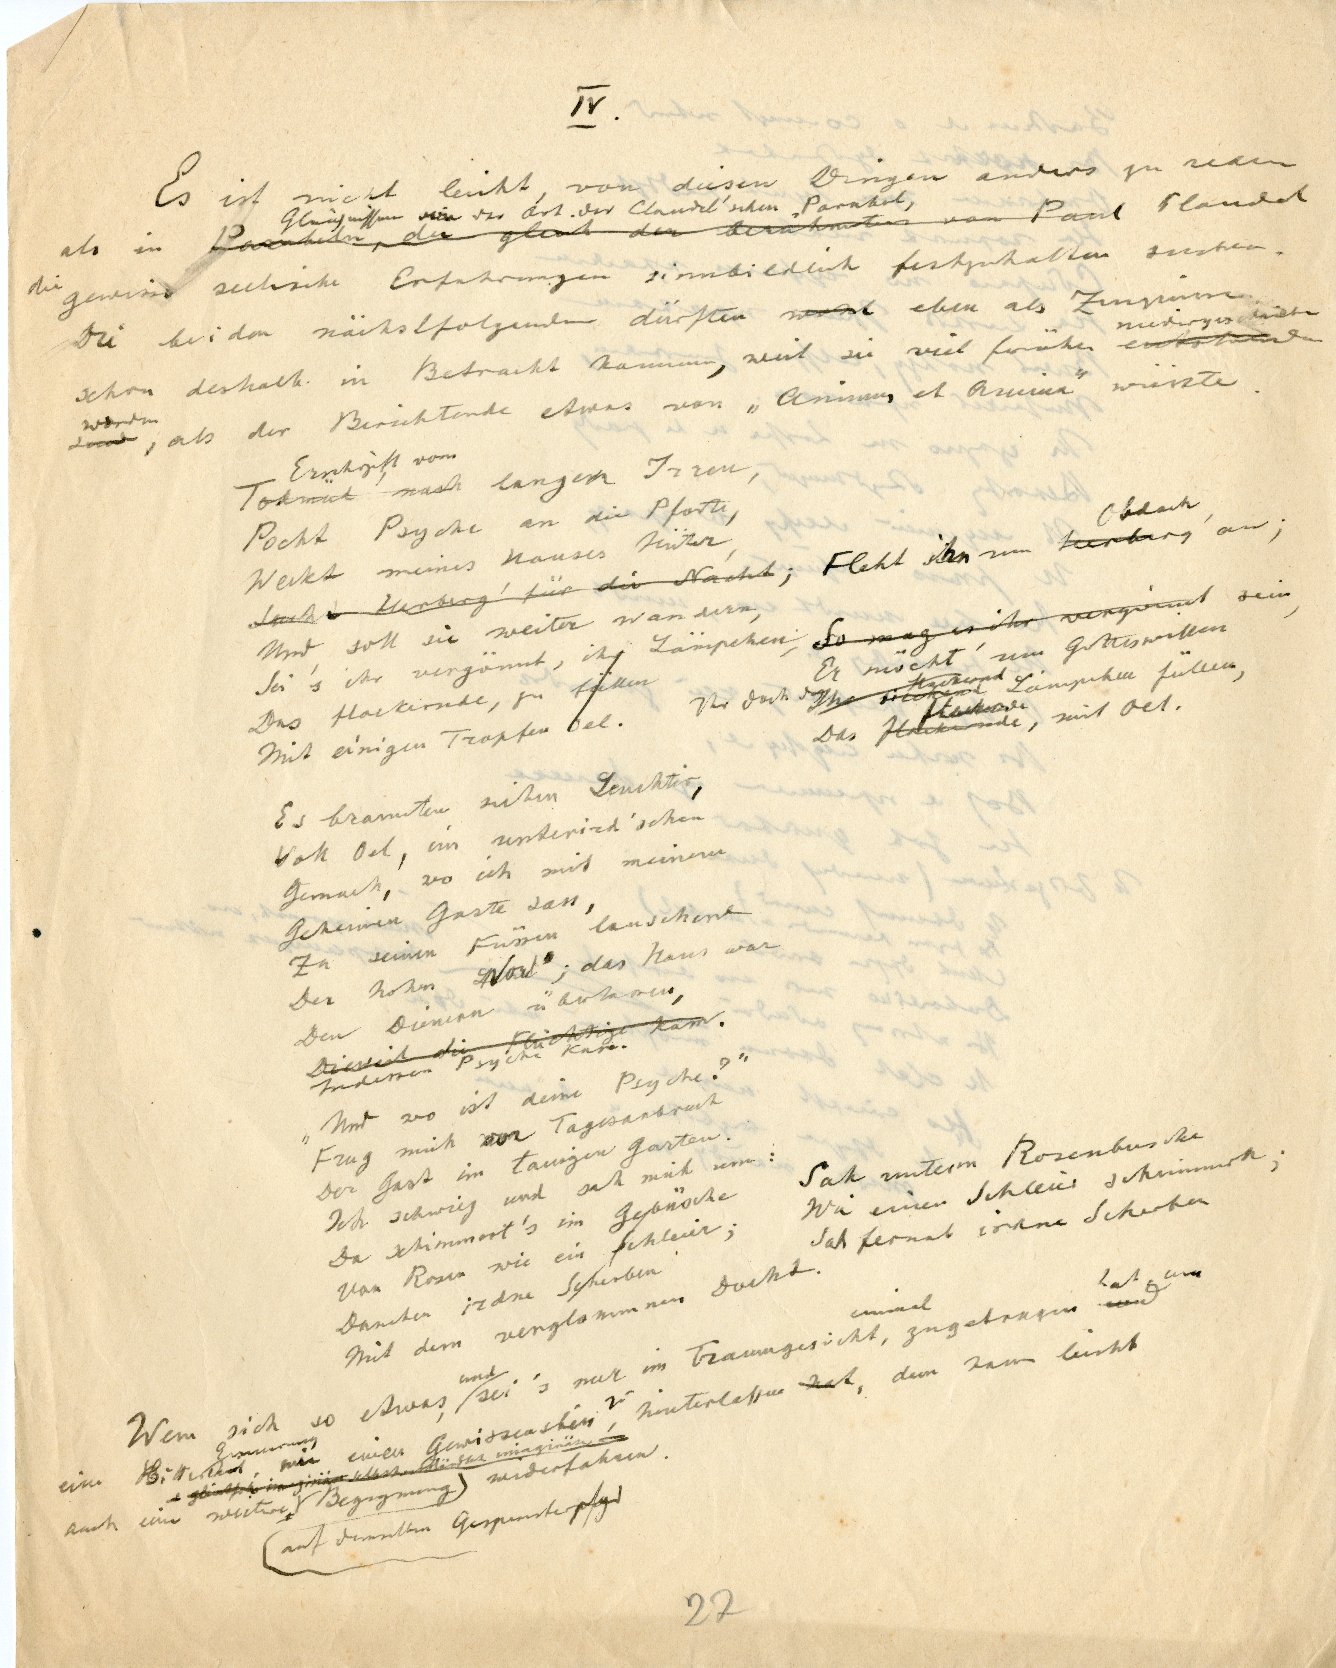 IV.
Es ist nicht leicht, von diesen Dingen anders zu reden
Gleichnissen von der Art der Claudel'schen Parabel,
als in Parabeln, die gleich der berühmten von Paul Claudel
die gewisse seelische Erfahrungen sinnbildlich festzuhalten suchen.
Die beiden nächstfolgenden dürften wohl eben als Zeugnisse
niedergeschrieben
schon deshalb in Betracht kommen, weil sie viel früher entstanden
worden
sind, als der Berichtende etwas von „Animus et Anima" wusste.
Erschöpft vom
Todmüd nach langem Irren,
Pocht Psyche an die Pforte,
Weckt meines Hauses Hüter,
Sucht Herberg' für die Nacht;
Und, soll sie weiter wandern,
Sei's ihr vergönnt, ihr Lämpchen,
Das flackernde, zu füllen
Mit einigen Tropfen Oel.
Obdach
Fleht ihn um Herberg' an;
So mag es ihr vergönnt sein,
Er möcht' um Gotteswillen
flackernd
Ihr doch das Lämpchen füllen,
flackernde
Das flackernde, mit Oel.
Es brannten sieben Leuchter,
Voll Oel, im unterird'schen
Gemach, wo ich mit meinem
Geheimen Gaste sass,
Zu seinen Füssen lauschend
Der hohen Nous; das Haus war
Den Dienern überlassen,
Dieweil die Flüchtige kam.
Indessen Psyche kam.
„Und wo ist deine Psyche?"
Frug mich vor Tagesanbruch
Der Gast im tauigen Garten.
Ich schwieg und sah mich um:
Da schimmert's im Gebüsche
Von Rosen wie ein Schleier;
Daneben irdne Scherben
Mit dem verglommnen Docht.
Sah unterm Rosenbusche
Wie einen Schleier schimmern;
Sah fernab irdne Scherben
einmal
hat, um
Wem sich so etwas, und sei's nur im Traumgesicht, zugetragen und
Erinnerung
eine Bitterkeit, wie einen Gewissensbiss, hinterlassen hat, dem kann leicht
auch eine weitere Begegnung widerfahren.
(auf demselben Gespensterpfad
27